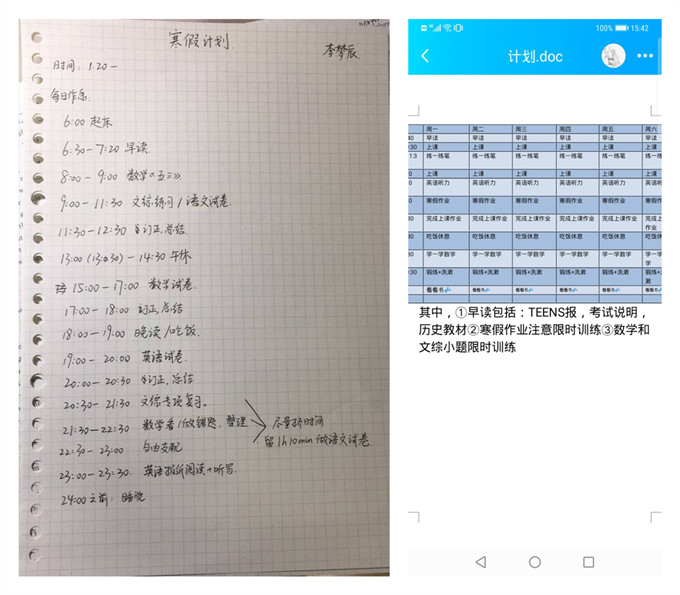 寒假计划
李梦辰
时间: 1.20 —
每日作息:
6:00 起床
6:30 - 7:20 早读
8:00 - 9:00 数学《五三》
9:00 - 11:30 文综练习 / 语文试卷
11:30 - 12:30 订正,总结
13:00 (13:30) - 14:30 午休
15:00 - 17:00 数学试卷
17:00 - 18:00 订正,总结
18:00 - 19:00 晚读/吃饭
19:00 - 20:00 英语试卷
20:00 - 20:30 订正,总结
20:30 - 21:30 文综专项复习
21:30 - 22:30 数学看/做错题,整理
尽量挤时间
留1h10min做语文试卷
22:30 - 23:00 自由支配
23:00 - 23:30 英语报纸阅读+听写
24:00之前: 睡觉
100% 15:42
计划.doc
周一 周二 周三 周四 周五 周六
早读 早读 早读 早读 早读 早读
上课 上课 上课 上课 上课 上课
练一练笔 练一练笔 练一练笔 练一练笔 练一练笔 练一练笔
上课 上课 上课 上课 上课 上课
英语听力 英语听力 英语听力 英语听力 英语听力 英语听力
寒假作业 寒假作业 寒假作业 寒假作业 寒假作业 寒假作业
完成上课作业 完成上课作业 完成上课作业 完成上课作业 完成上课作业 完成上课作业
吃饭休息 吃饭休息 吃饭休息 吃饭休息 吃饭休息 吃饭休息
学一学数学 学一学数学 学一学数学 学一学数学 学一学数学 学一学数学
锻炼+洗漱 锻炼+洗漱 锻炼+洗漱 锻炼+洗漱 锻炼+洗漱 锻炼+洗漱
看看书 看看书 看看书 看看书 看看书 看看书
其中,①早读包括:TEENS报,考试说明,
历史教材②寒假作业注意限时训练③数学和
文综小题限时训练